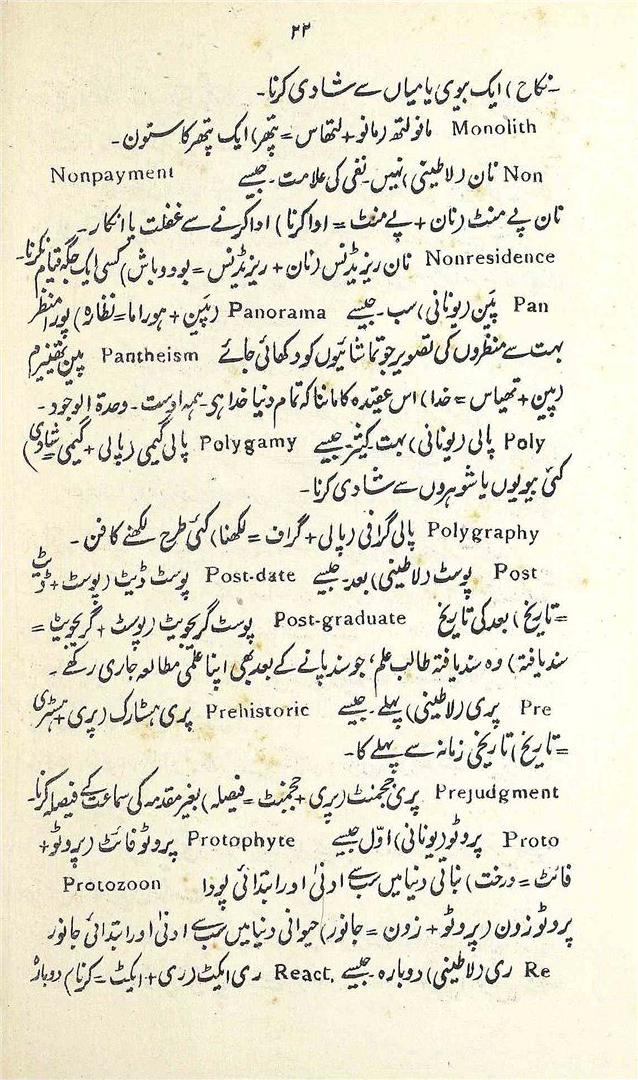 ۲۲
۔ نکاح) ایک بیوی یا میاں سے شادی کرنا۔
Monolith مانولتھ (مانو + لتھاس = پتھر) ایک پتھر کا ستون۔
Non نان (لاطینی) نہیں۔ نفی کی علامت۔ جیسے Nonpayment
نان پے منٹ (نان + پے منٹ = ادا کرنا) ادا کرنے سے غفلت یا انکار۔
Nonresidence نان ریزیڈنس (نان + ریزیڈنس = بود و باش) کسی ایک جگہ قیام نکرنا۔
Pan پَین (یونانی) سب۔ جیسے Panorama (پَین + ہوراما = نظارہ) پورا منظر
بہت سے منظروں کی تصویر جو تماشائیوں کو دکھائی جائے Pantheism پین تھیزم
(پین + تھیاس = خدا) اس عقیدہ کا ماننا کہ تمام دنیا خدا ہی۔ ہمہ اوست۔ وحدۃ الوجود۔
Poly پالی (یونانی) بہت۔ کثیر جیسے Polygamy پالی گیمی (پالی + گیمی = شادی)
کئی بیویوں یا شوہروں سے شادی کرنا۔
Polygraphy پالی گرافی (پالی + گراف = لکھنا) کئی طرح لکھنے کا فن۔
Post پوسٹ (لاطینی) بعد۔ جیسے Post-date پوسٹ ڈیٹ (پوسٹ + ڈیٹ
= تاریخ) بعد کی تاریخ Post-graduate پوسٹ گریجویٹ (پوسٹ + گریجویٹ =
سند یافتہ) وہ سند یافتہ طالب علم، جو سند پانے کے بعد بھی اپنا علمی مطالعہ جاری رکھے۔
Pre پری (لاطینی) پہلے۔ جیسے Prehistoric پری ہسٹارک (پری + ہسٹری
= تاریخ) تاریخی زمانہ سے پہلے کا۔
Prejudgment پری ججمنٹ (پری + ججمنٹ = فیصلہ) بغیر مقدمہ کی سماعت کے فیصلہ کرنا۔
Proto پروٹو (یونانی) اوّل جیسے Protophyte پروٹو فائٹ (پروٹو +
فائٹ = درخت) نباتی دنیا میں سب سے ادنیٰ اور ابتدائی پودا Protozoon
پروٹو زون (پروٹو + زون = جانور) حیوانی دنیا میں سب سے ادنیٰ اور ابتدائی جانور
Re ری (لاطینی) دوبارہ۔ جیسے React. ری ایکٹ (ری + ایکٹ = کرنا) دوبارہ